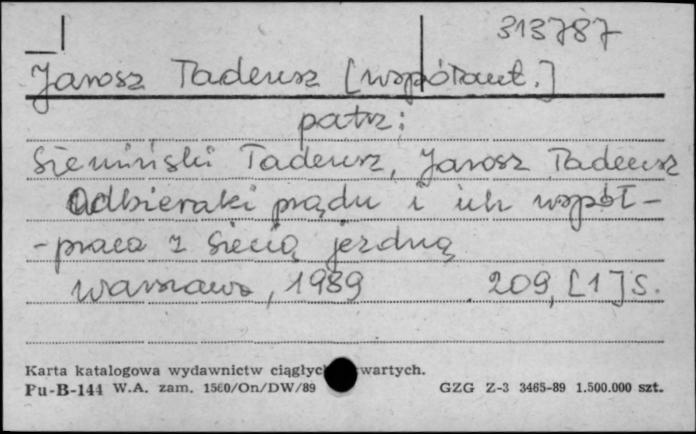 313787
Jarosz Tadeusz [współaut.]
patrz:
Siemiński Tadeusz, Jarosz Tadeusz
Odbieraki prądu i ich współ-
-praca z siecią jezdną
Warszawa, 1989 209, [1] s.
Karta katalogowa wydawnictw ciągłych wartych.
Pu-B-144 W.A. zam. 1560/On/DW/89 GZG Z-3 3465-89 1.500.000 szt.